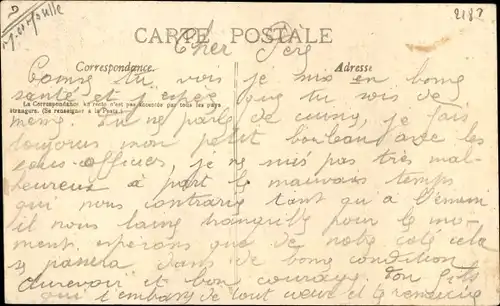 2187
CARTE POSTALE
Cher Père
Correspondance.
Adresse
Comme tu vois je suis en bonne
santé et espère que tu sois de
La Correspondance au recto n'est pas acceptée par tous les pays
étrangers. (Se renseigner à la Poste.)
même. Tu me parle de je fais
toujours mon petit bouleau avec les
sous-officiers, je ne suis pas très mal-
heureux à part le mauvais temps
qui nous contrarie tant qu a l'ennemi
il nous laisse tranquille pour le mo-
ment esperons que de notre coté cela
se passera dans de bonne condition
aurevoir et bon courage. Ton fils
qui t'embrasse de tout coeur et